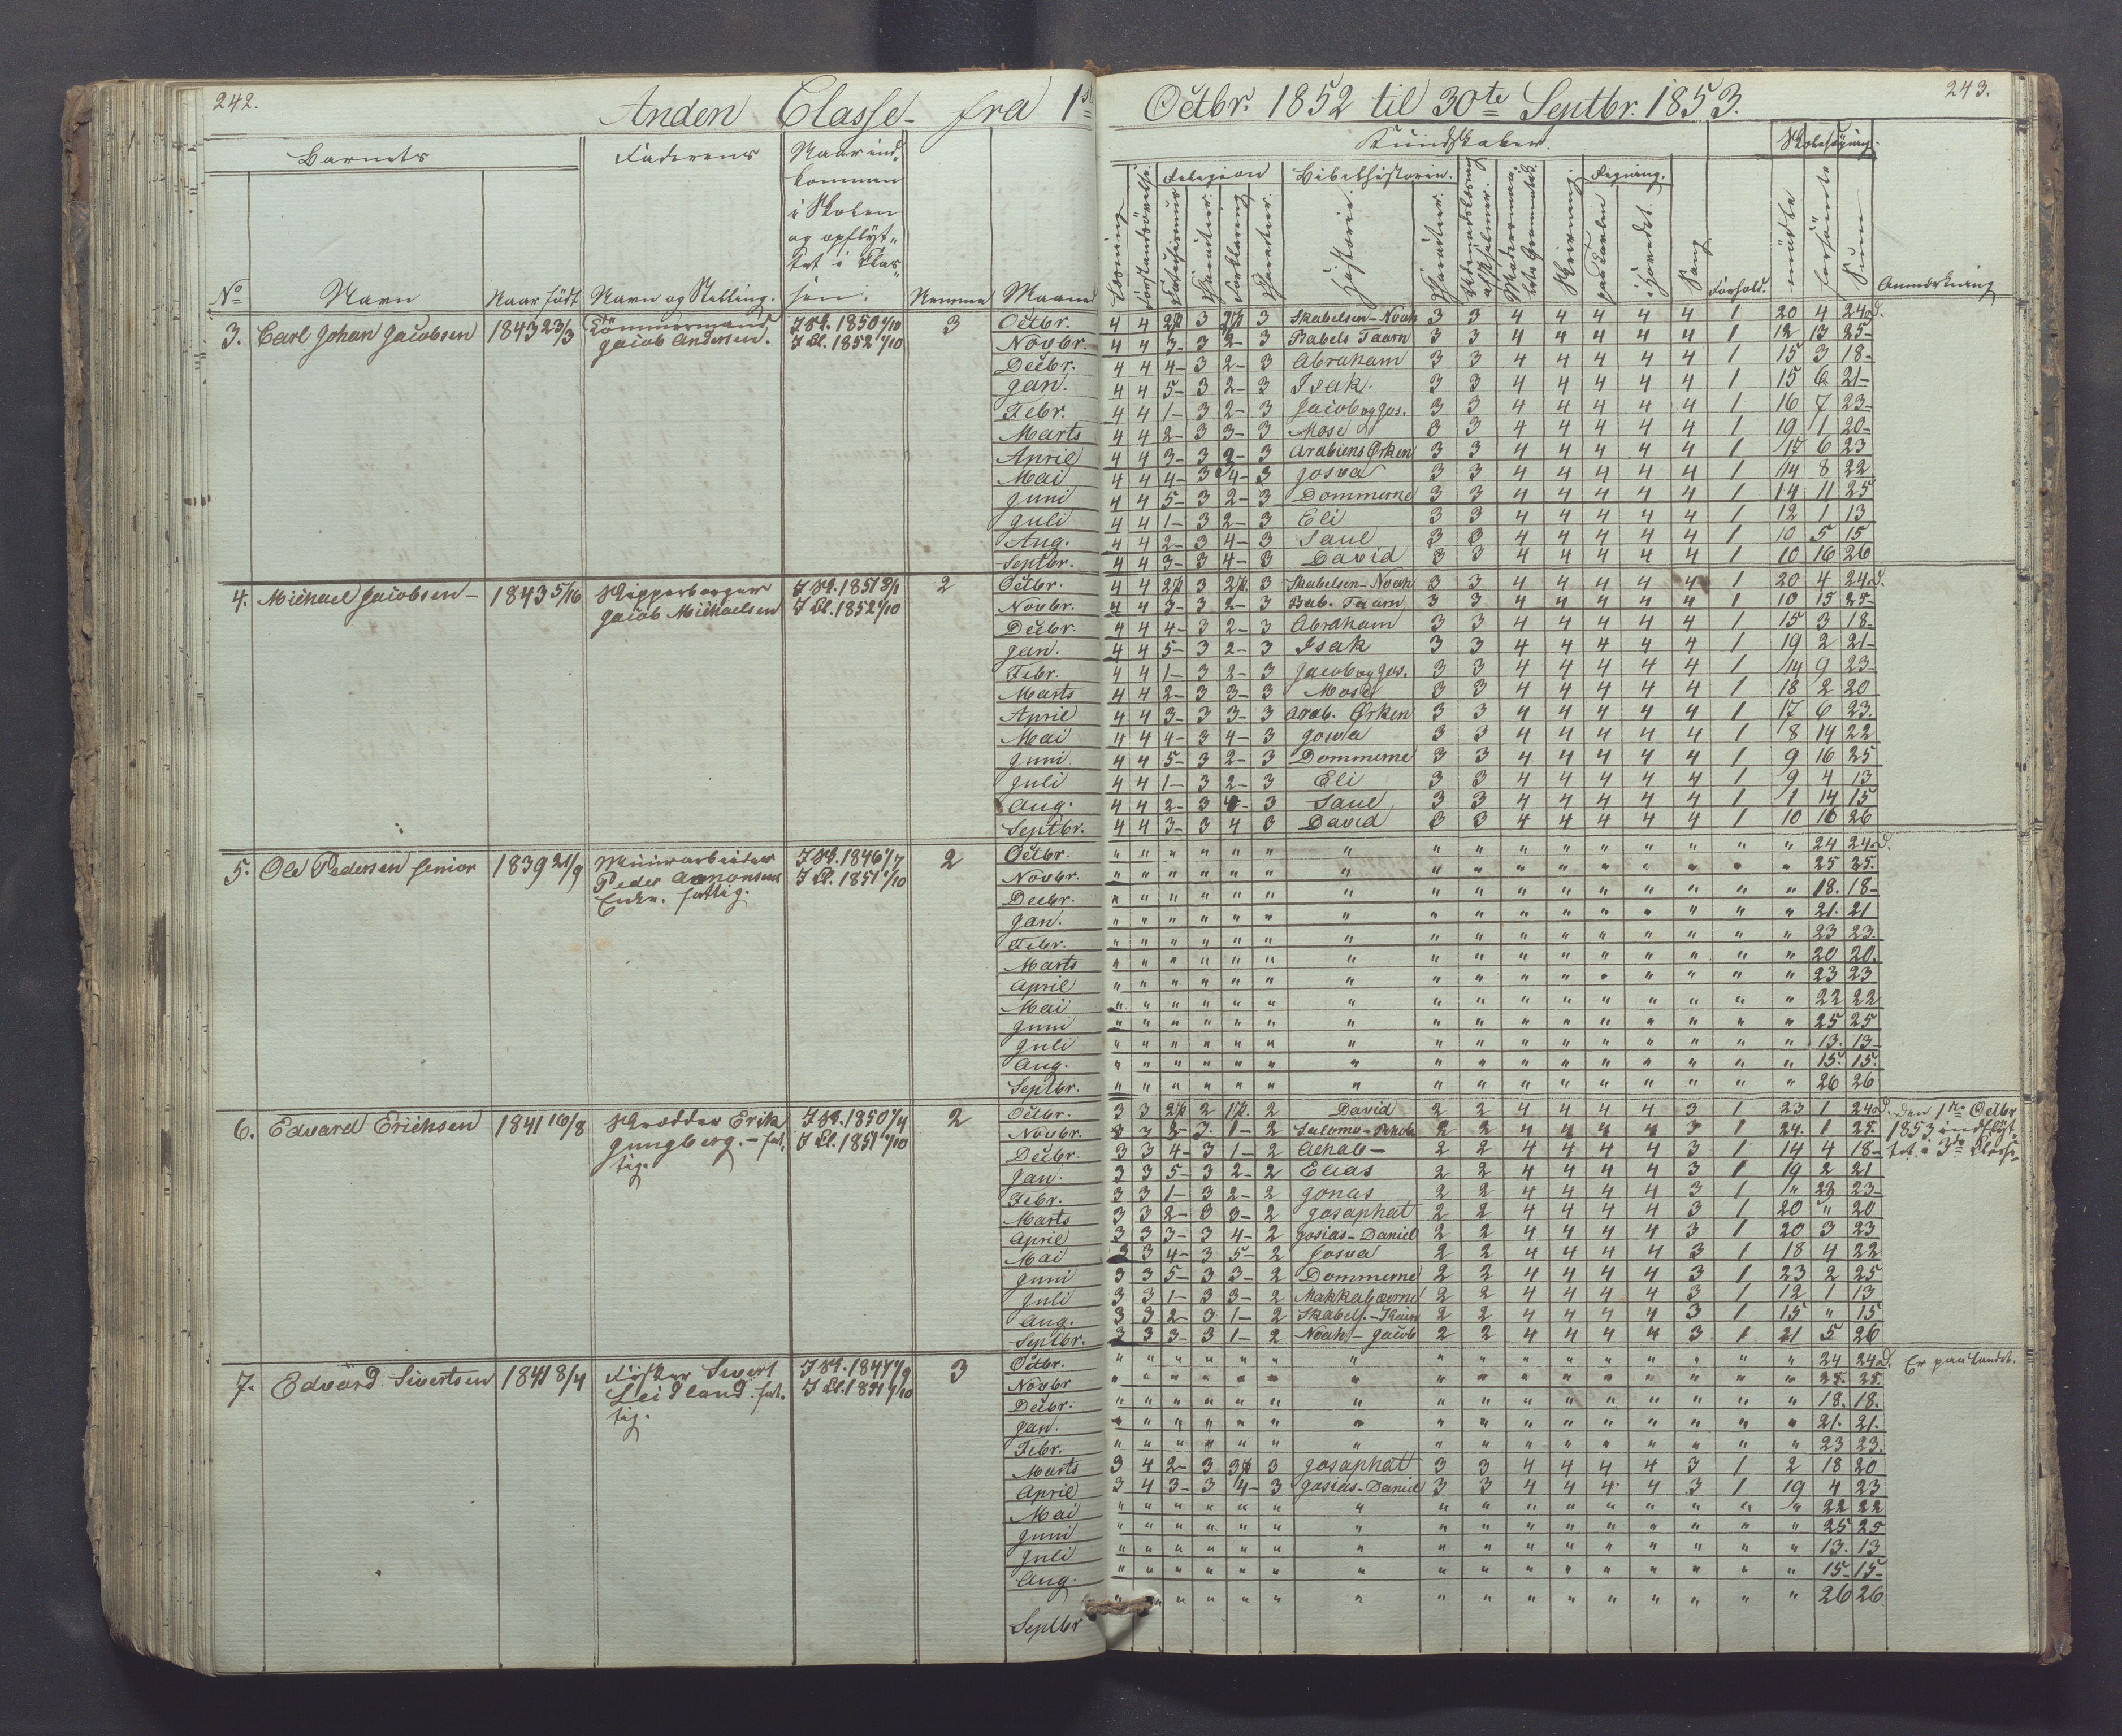 242.
Anden Classe fra 1ste
Octbr. 1852 til 30te Septbr. 1853.
243.
Barnets
Faderens
Naar ind-
kommen
i Skolen
og opflyt-
tet i Clas-
sen.
No
Navn
Naar født
Navn og Stilling.
Nemme
Maaned
Kundskaber.
Skolesøgning.
Religion
Bibelhistorie.
Regning.
Læsning
Historie.
Character.
Skrivning.
paa Tavlen
i Hovedet.
Sang
Forhold.
mødte
forsømte
Sum
Anmærkning
3. Carl Johan Jacobsen 1843 23/3 Tømmermand I Sk. 1850 1/10 3
Jacob Andersen. I Cl. 1852 1/10
Octbr. 4 4 3 3 Skabelsen-Noah 3 3 4 4 4 4 4 1 20 4 24 d.
Novbr. 4 4 3- 3 2- 3 Babels Taarn 3 3 4 4 4 4 4 1 12 13 25-
Decbr. 4 4 4- 3 2- 3 Abraham 3 3 4 4 4 4 4 1 15 3 18-
Jan. 4 4 5- 3 2- 3 Isak. 3 3 4 4 4 4 4 1 15 6 21-
Febr. 4 4 1- 3 2- 3 Jacob og Jos. 3 3 4 4 4 4 4 1 16 7 23-
Marts 4 4 2- 3 3- 3 Mose 3 3 4 4 4 4 4 1 19 1 20-
April 4 4 3- 3 2- 3 Arabiens Ørken 3 3 4 4 4 4 4 1 17 6 23
Mai 4 4 4- 3 4- 3 Josva 3 3 4 4 4 4 4 1 14 8 22
Juni 4 4 5- 3 2- 3 Dommerne 3 3 4 4 4 4 4 1 14 11 25
Juli 4 4 1- 3 2- 3 Eli 3 3 4 4 4 4 4 1 12 1 13
Aug. 4 4 2- 3 4- 3 Saul 3 3 4 4 4 4 4 1 10 5 15
Septbr. 4 4 3- 3 4- 3 David 3 3 4 4 4 4 4 1 10 16 26
4. Michael Jacobsen- 1843 5/10 Skipperborger I Sk. 1851 2
Jacob Michaelsen I Cl. 1852 1/10
Octbr. 4 4 3 3 Skabelsen-Noah 3 3 4 4 4 4 4 1 20 4 24 d.
Novbr. 4 4 3- 3 2- 3 Bab. Taarn 3 3 4 4 4 4 4 1 10 15 25-
Decbr. 4 4 4- 3 2- 3 Abraham 3 3 4 4 4 4 4 1 15 3 18-
Jan. 4 4 5- 3 2- 3 Isak 3 3 4 4 4 4 4 1 19 2 21-
Febr. 4 4 1- 3 2- 3 Jacob og Jos. 3 3 4 4 4 4 4 1 14 9 23-
Marts 4 4 2- 3 3- 3 Mose 3 3 4 4 4 4 4 1 18 2 20
April 4 4 3- 3 3- 3 Arab. Ørken 3 3 4 4 4 4 4 1 17 6 23.
Mai 4 4 4- 3 4- 3 Josva 3 3 4 4 4 4 4 1 8 14 22
Juni 4 4 5- 3 2- 3 Dommerne 3 3 4 4 4 4 4 1 9 16 25
Juli 4 4 1- 3 2- 3 Eli 3 3 4 4 4 4 4 1 9 4 13
Aug. 4 4 2- 3 4- 3 Saul 3 3 4 4 4 4 4 1 1 14 15
Septbr. 4 4 3- 3 4 3 David 3 3 4 4 4 4 4 1 10 16 26
5. Ole Pedersen senior 1839 21/9 Muurarbeider I Sk. 1846 1/7 2
Peder I Cl. 1851 1/10
Enke. fattig.
Octbr. " " " " " " " " " " " " " " " " 24 24 d.
Novbr. " " " " " " " " " " " " " " " " 25 25.
Decbr. " " " " " " " " " " " " " " " " 18. 18-
Jan. " " " " " " " " " " " " " " " " 21. 21
Febr. " " " " " " " " " " " " " " " " 23 23.
Marts " " " " " " " " " " " " " " " " 20 20.
April " " " " " " " " " " " " " " " " 23 23
Mai " " " " " " " " " " " " " " " " 22 22
Juni " " " " " " " " " " " " " " " " 25 25
Juli " " " " " " " " " " " " " " " " 13. 13-
Aug. " " " " " " " " " " " " " " " " 15. 15.
Septbr. " " " " " " " " " " " " " " " " 26 26
6. Edvard Erichsen 1841 16/8 Skrædder Erik I Sk. 1850 1/4 2
Jungberg.- fat. I Cl. 1851 1/10
tig.
Octbr. 3 3 2 2 David 2 2 4 4 4 4 3 1 23 1 24 d. Den 1ste Octbr
Novbr. 3 3 3- 3. 1- 2 2 2 4 4 4 4 3 1 24. 1 25. 1853 indflyt-
Decbr. 3 3 4- 3 1- 2 Achab- 2 2 4 4 4 4 3 1 14 4 18- tet i 3die Classe
Jan. 3 3 5- 3 2- 2 Elias 2 2 4 4 4 4 3 1 19 2 21
Febr. 3 3 1- 3 2- 2 Jonas 2 2 4 4 4 4 3 1 23-
Marts 3 3 2- 3 3- 2 Josaphat 2 2 4 4 4 4 3 1 20 " 20
April 3 3 3- 3 4- 2 Josias-Daniel 2 2 4 4 4 4 3 1 20 3 23
Mai 3 3 4- 3 5- 2 Josva 2 2 4 4 4 4 3 1 18 4 22
Juni 3 3 5- 3 3- 2 Dommerne 2 2 4 4 4 4 3 1 23 2 25
Juli 3 3 1- 3 3- 2 Makkabæerne 2 2 4 4 4 4 3 1 12 1 13
Aug. 3 3 2- 3 1- 2 Skabels.-Kain 2 2 4 4 4 4 3 1 15 " 15
Septbr. 3 3 3- 3 1- 2 Noah-Jacob 2 2 4 4 4 4 3 1 21 5 26
7. Edvard Sivertsen 1841 8/4 Fisker Sivert I Sk. 1847 1/9 3
Leidland. fat. I Cl. 1851 1/10
tig.
Octbr. " " " " " " " " " " " " " " " " 24 24 d. Er paa Landet.
Novbr " " " " " " " " " " " " " " " " 25. 25.
Decbr. " " " " " " " " " " " " " " " " 18. 18.
Jan. " " " " " " " " " " " " " " " " 21. 21.
Febr. " " " " " " " " " " " " " " " " 23 23.
Marts 3 4 2- 3 3 Josaphat 3 3 4 4 4 4 3 1 2 18 20
April 3 4 3- 3 4- 3 Josias-Daniel 3 3 4 4 4 4 3 1 19 4 23
Mai " " " " " " " " " " " " " " " " 22 22
Juni " " " " " " " " " " " " " " " " 25 25
Juli " " " " " " " " " " " " " " " " 13. 13
Aug. " " " " " " " " " " " " " " " " 15- 15-
Septbr " " " " " " " " " " " " " " " " 26 26